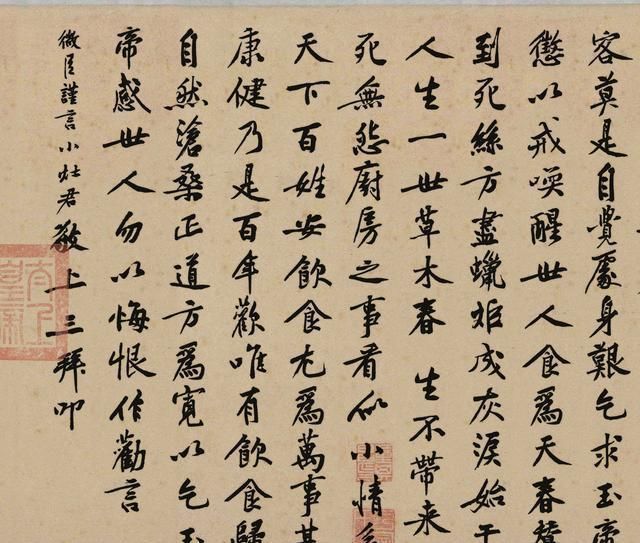 客莫是自覺處身艱乞求玉帝
懲以戒喚醒世人食為天春蠶
到死絲方盡蠟炬成灰淚始干
人生一世草木春 生不帶來
死無怨廚房之事看似小情系
天下百姓安飲食尤為萬事其
康健乃是百年歡唯有飲食歸
自然滄桑正道方為寬以乞玉
帝感世人勿以悔恨作勸言
微臣謹言小灶君敬上三拜叩